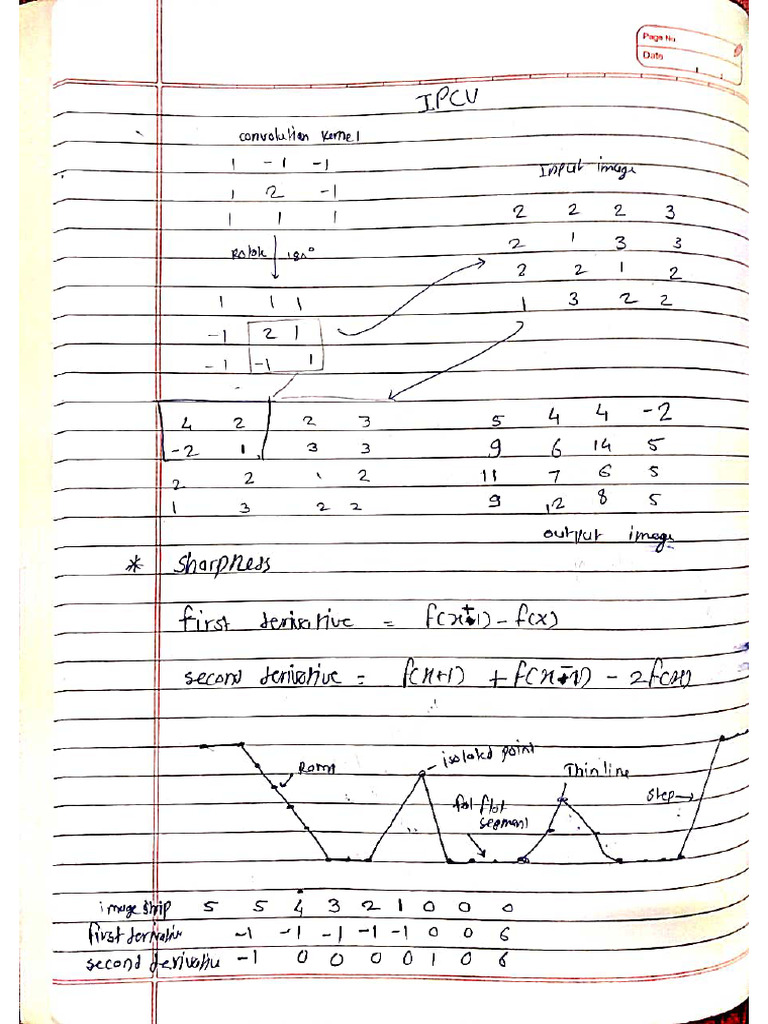 Page No
Date
IPCU
convolution kernel
1 -1 -1
1 2 -1
1 1 1
Rotate 180°
1 1 1
-1 2 1
-1 -1 1
Input image
2 2 2 3
2 1 3 3
2 2 1 2
1 3 2 2
4 2 2 3
-2 1 3 3
2 2 1 2
1 3 2 2
5 4 4 -2
9 6 14 5
11 7 6 5
9 12 8 5
output image
* sharpness
first derivative = f(x+1) - f(x)
second derivative = f(x+1) + f(x-1) - 2f(x)
Ramp
isolated point
flat
segment
Thin line
step
image strip 5 5 4 3 2 1 0 0 0
first derivative -1 -1 -1 -1 -1 0 0 6
second derivative -1 0 0 0 0 1 0 6